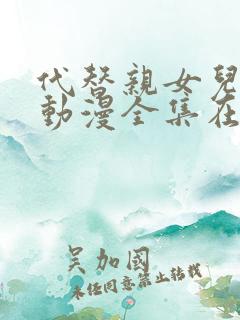 代替親女兒
動漫全集在
吴加國
未任同意禁止转载